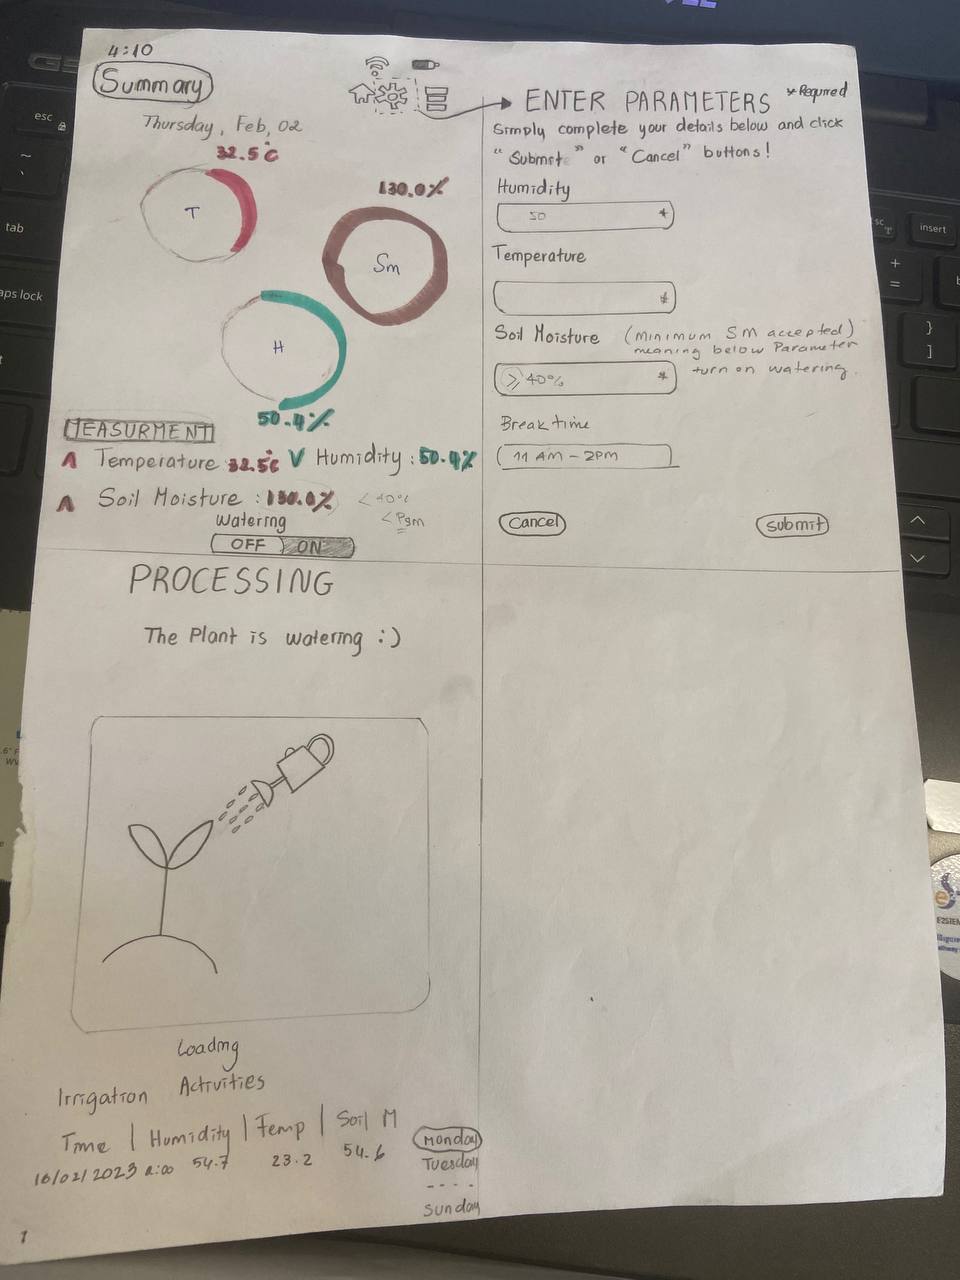 4:10
Summary
Thursday, Feb, 02
32.5°C
T
130.0%
Sm
H
50.4%
MEASURMENT
Λ Temperature 32.5°C V Humidity : 50.4%
Λ Soil Moisture : 130.0% < 40%
< Pgm
Watering
OFF ON
ENTER PARAMETERS * Required
Simply complete your details below and click
"Submit" or "Cancel" buttons!
Humidity
50 *
Temperature
*
Soil Moisture (minimum SM accepted)
meaning below Parameter
turn on watering.
≥ 40% *
Break time
11 AM - 2PM
Cancel
Submit
PROCESSING
The Plant is watering :)
Loading
Irrigation Activities
Time | Humidity | Temp | Soil M
54.7 23.2 54.6
Monday
Tuesday
- - - -
Sunday
1
esc
tab
aps lock
insert
+
=
}
]
E2STEM